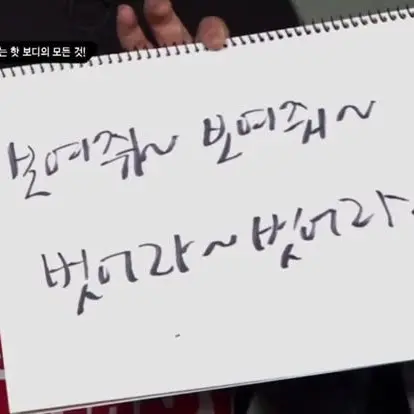 는 핫 보디의 모든 것!
보여줘~ 보여줘~
벗어라~ 벗어라~